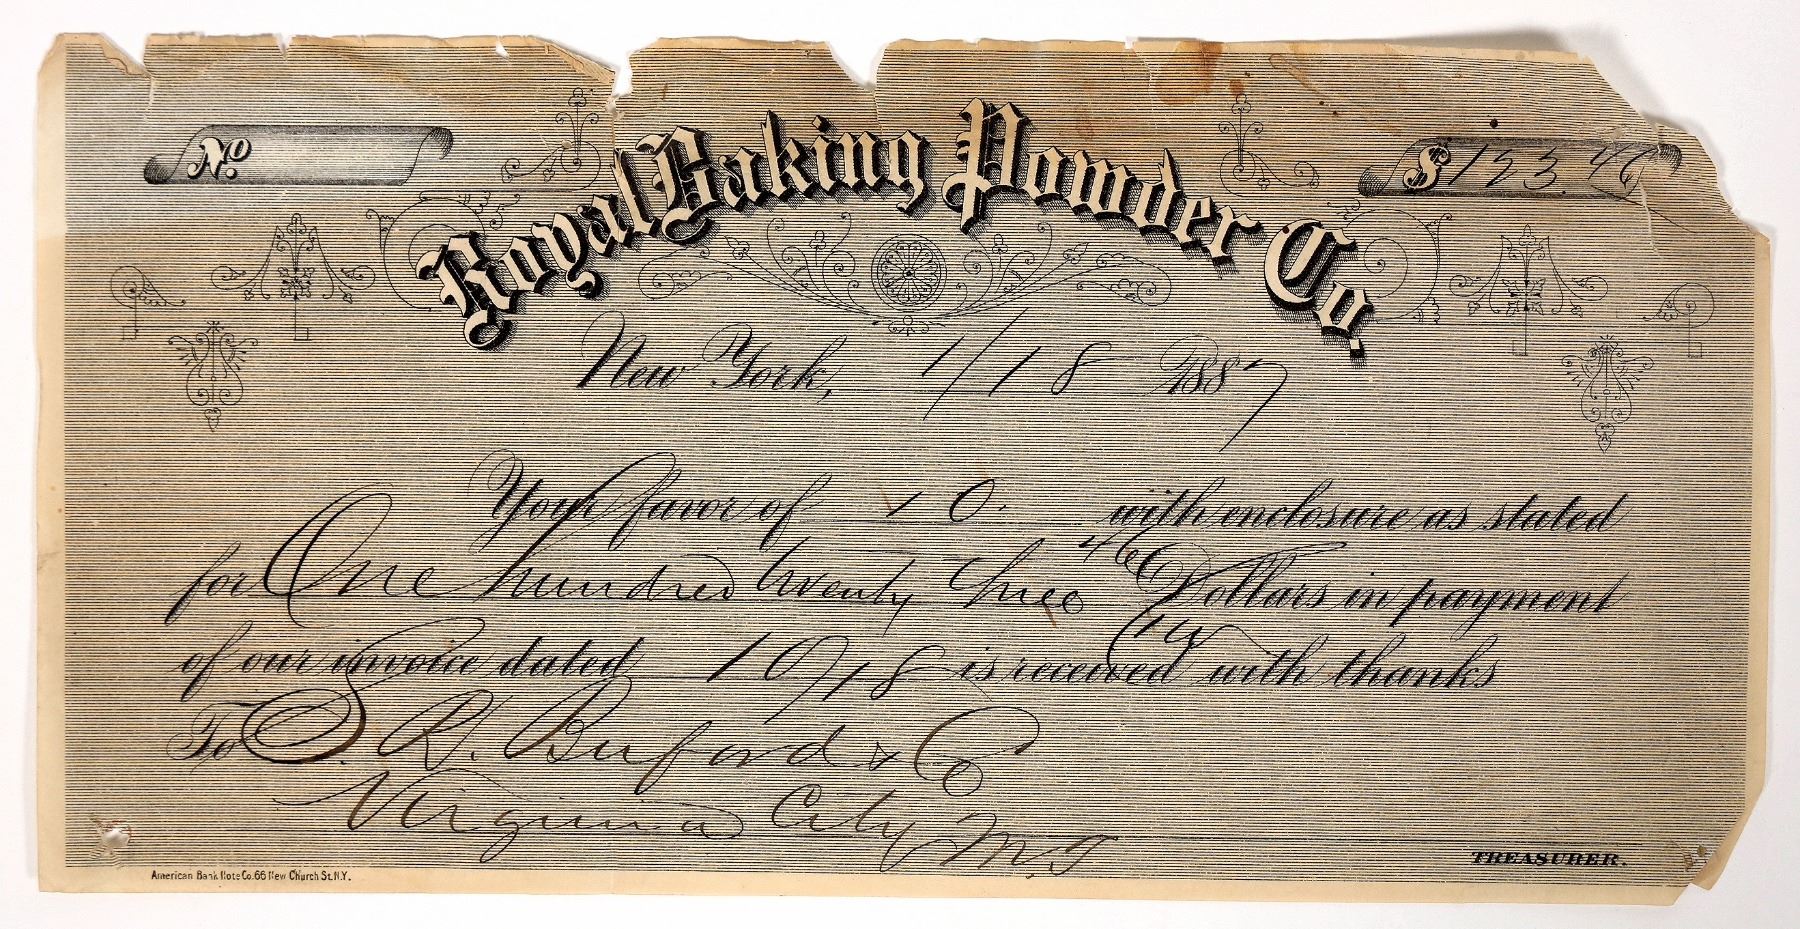 Royal Baking Powder Co.
No.
$ 123.46
New York, 1/18 1887
Your favor of 10. with enclosure as stated
for One hundred twenty three 46 Dollars in payment
of our invoice dated 10/18 is received with thanks
To S. R. Buford & Co
Virginia City M.T
TREASURER.
American Bank Note Co. 66 New Church St. N.Y.